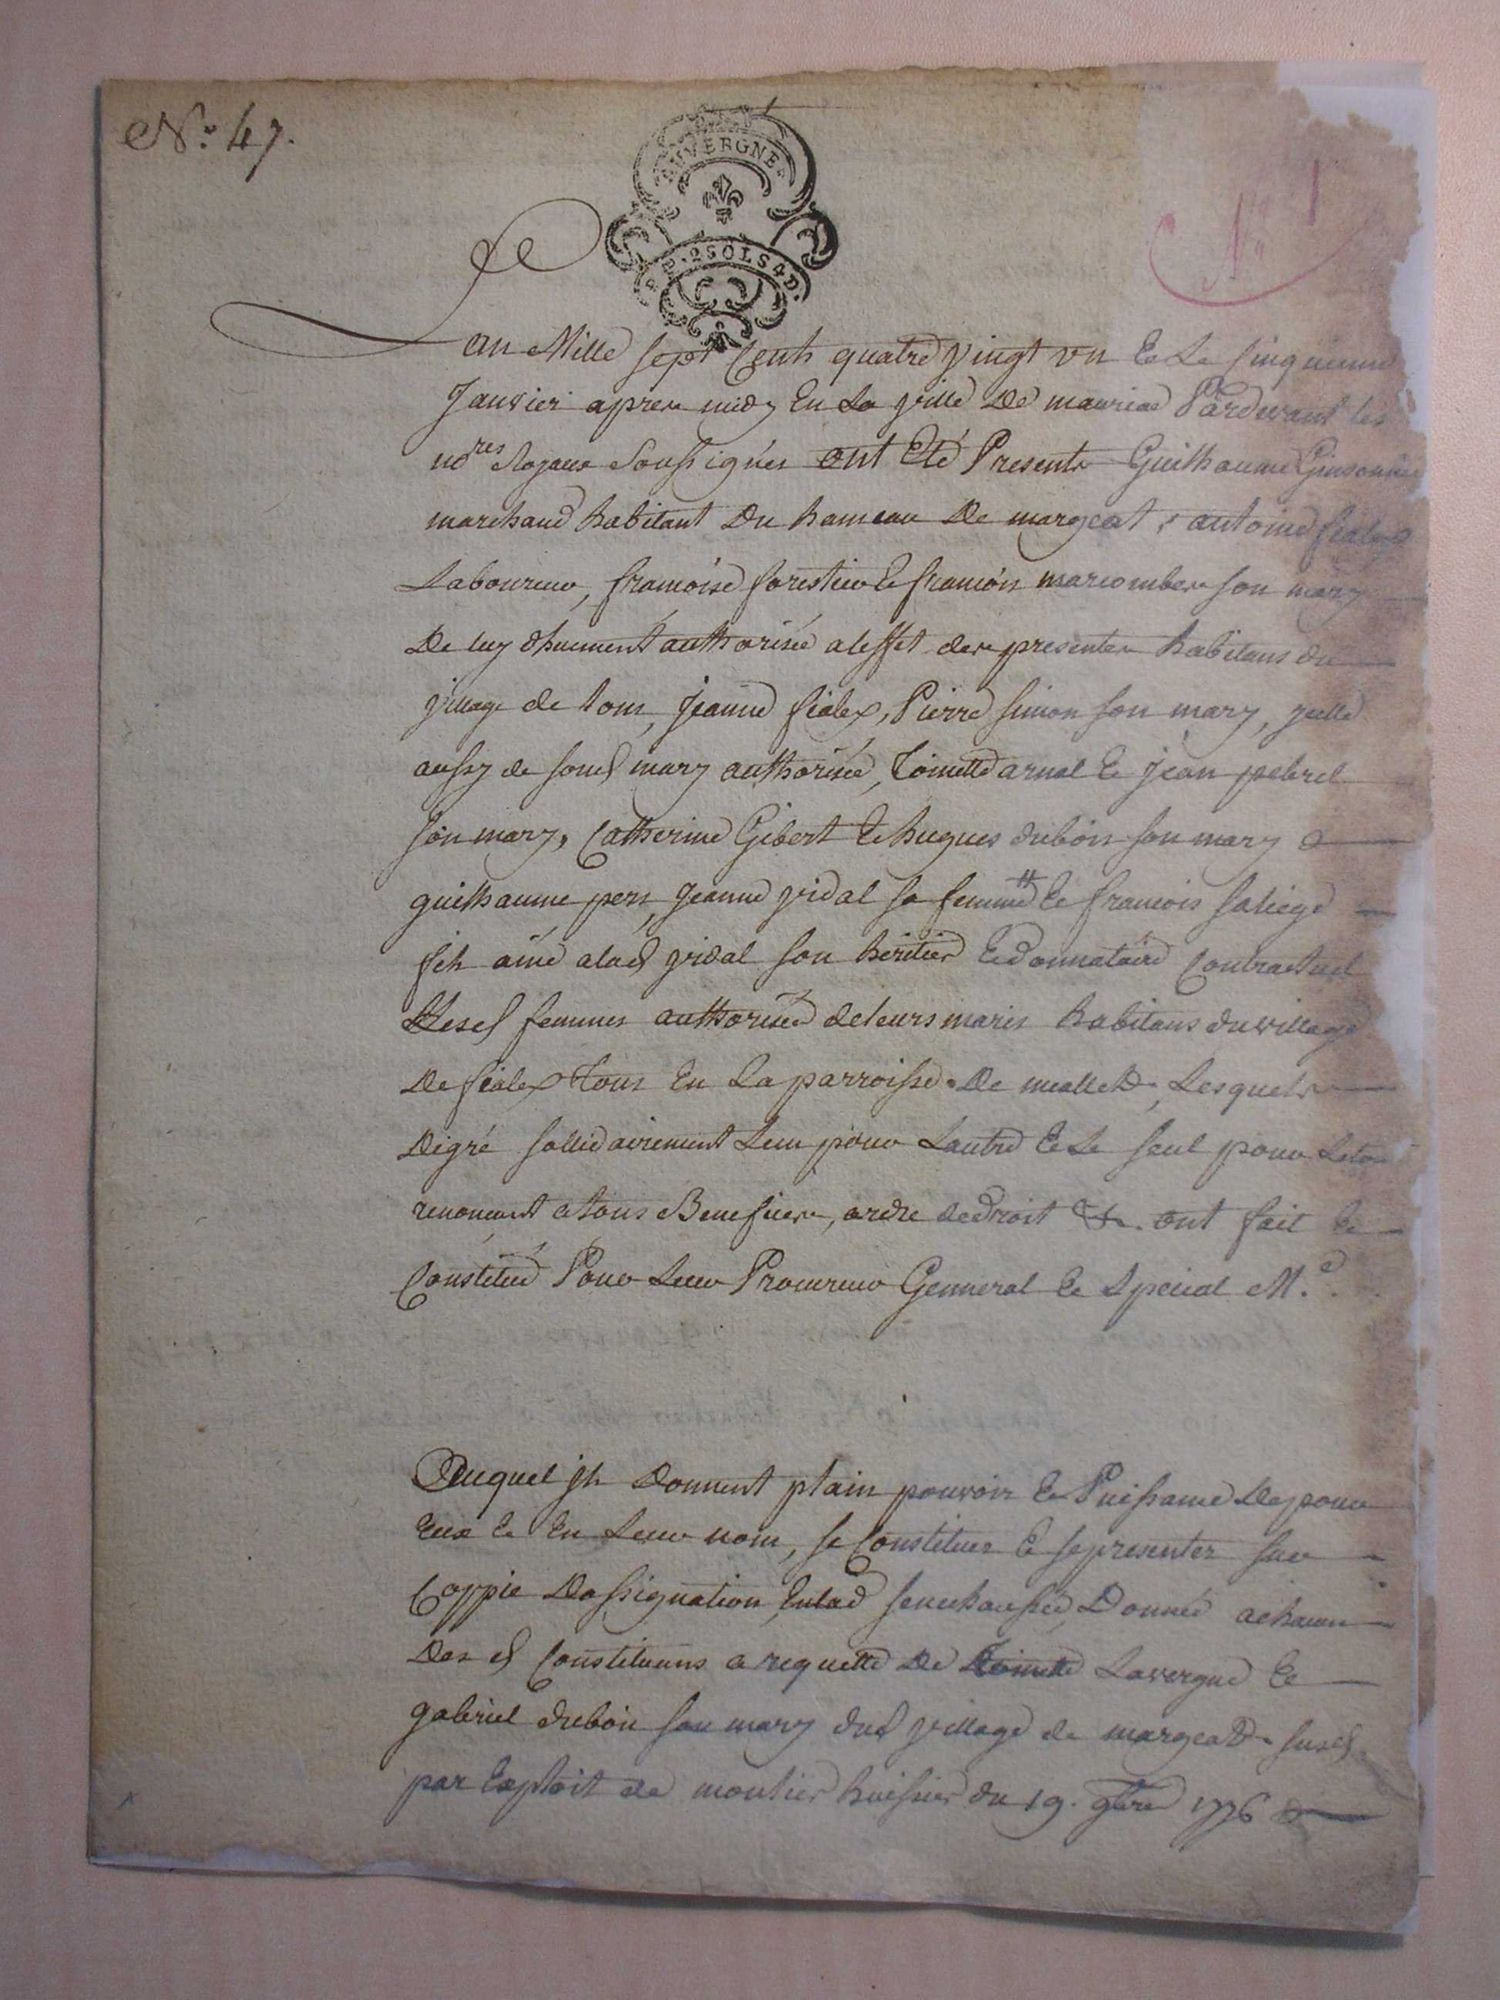 No. 47.
AUVERGNE
P.P. 2SOLS4D.
N° 1
Lan Mille sept Cents quatre vingt un Et Le sinquieme
Janvier apres midy En La ville De mauriac Pardevant les
nores Royaux Soussignés ont Eté Presents Guilhaume
marchand habitant Du hameau De margeat, antoine fialex
Laboureur, francoise forestier Et francois marcombes son mary
De luy dhuement authorisée a leffet des presentes habitans du
village de tons, Jeanne fialex, Pierre simon son mary, yelle
aussy de sond mary authorisée, Toinette arnal Et Jean pebrel
son mary, Catherine Gibert Et hugues dubois son mary &
guilhaume pers, Jeanne vidal sa femme # Et francois saliege
fils ainé alad vidal son héritier Et donnataire Contractuel
Lesd femmes authorisée de leurs maris habitans du village
De fialex tous En La parroisse De meallet, Lesquels
De gré sollidairement Lun pour Lautre Et Le seul pour Le tou
renoncant a tous Benefices, ordre de droit &c. ont fait Et
Constitué Pour Leur Procureur Genneral Et Special Me.
Auquel Ils Donnent plain pouvoir Et Puissance De pour
Eux Et En Leur nom, se Constituer Et se presenter sur
Coppie Dassignation En lad senechaussée Donnée a chacun
Des d Constituans a requette De Toinette Lavergne Et
gabriel dubois son mary dud village de margeat susd
par Exploit de moulier huissier du 19. 9bre 1776 &